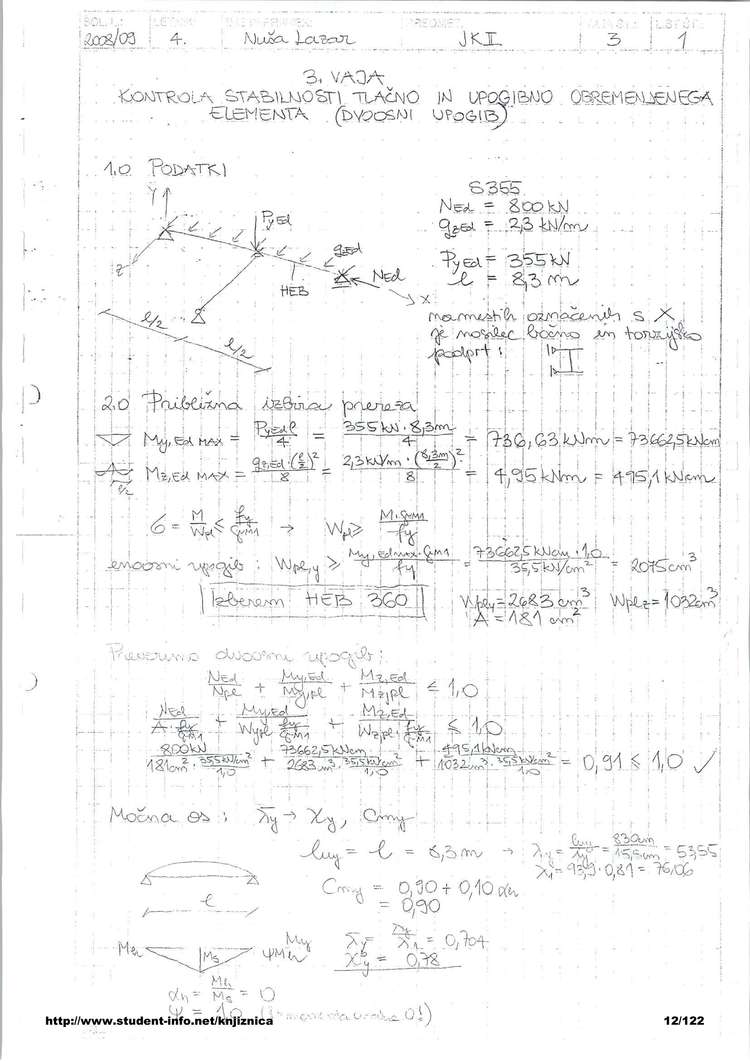 ŠOL.L.: LETNIK: PREDMET: LIST ŠT.:
2008/09 4. Nuša Lazar JK II 3 1
3. VAJA
KONTROLA STABILNOSTI TLAČNO IN UPOGIBNO OBREMENJENEGA
ELEMENTA (DVOOSNI UPOGIB)
1.0 PODATKI
S355
NEd = 800 kN
qzEd = 2,3 kN/m
PyEd = 355 kN
l = 8,3 m
Y
Z
X
PyEd
qzEd
NEd
HEB
l/2
l/2
na mestih označenih s X
je nosilec bočno in torzijsko
podprt:
2.0 Približna izbira prereza
My,Ed MAX = PyEd·l/4 = 355 kN · 8,3m/4 = 736,63 kNm = 73662,5 kNcm
l/2
Mz,Ed MAX = qz,Ed·(l/2)²/8 = 2,3 kN/m · (8,3m/2)²/8 = 4,95 kNm = 495,1 kNcm
σ = M/Wpl ≤ fy/γM1 → Wpl ≥ M·γM1/fy
enoosni upogib: Wpl,y ≥ My,Edmax·γM1/fy = 73662,5 kNcm · 1,0/35,5 kN/cm² = 2075 cm³
Izberem HEB 360 Wply = 2683 cm³ Wplz = 1032 cm³
A = 181 cm²
Preverimo dvoosni upogib:
NEd/Npl + My,Ed/My,pl + Mz,Ed/Mz,pl ≤ 1,0
NEd/A·fy/γM1 + My,Ed/Wy,pl·fy/γM1 + Mz,Ed/Wz,pl·fy/γM1 ≤ 1,0
800kN/181cm²·35,5kN/cm²/1,0 + 73662,5kNcm/2683cm³·35,5kN/cm²/1,0 + 495,1kNcm/1032cm³·35,5kN/cm²/1,0 = 0,91 ≤ 1,0 ✓
Močna os: λ̄y → χy, Cmy
luy = l = 8,3 m → λy = luy/iy = 830cm/15,5cm = 53,55
λ1 = 93,9 · 0,81 = 76,06
l
Cmy = 0,90 + 0,10 αh
= 0,90
Mh Ms ψMh My
λ̄y = λy/λ1 = 0,704
χy = 0,78
αh = Mh/Ms = 0
ψ = 1,0
http://www.student-info.net/knjiznica 12/122